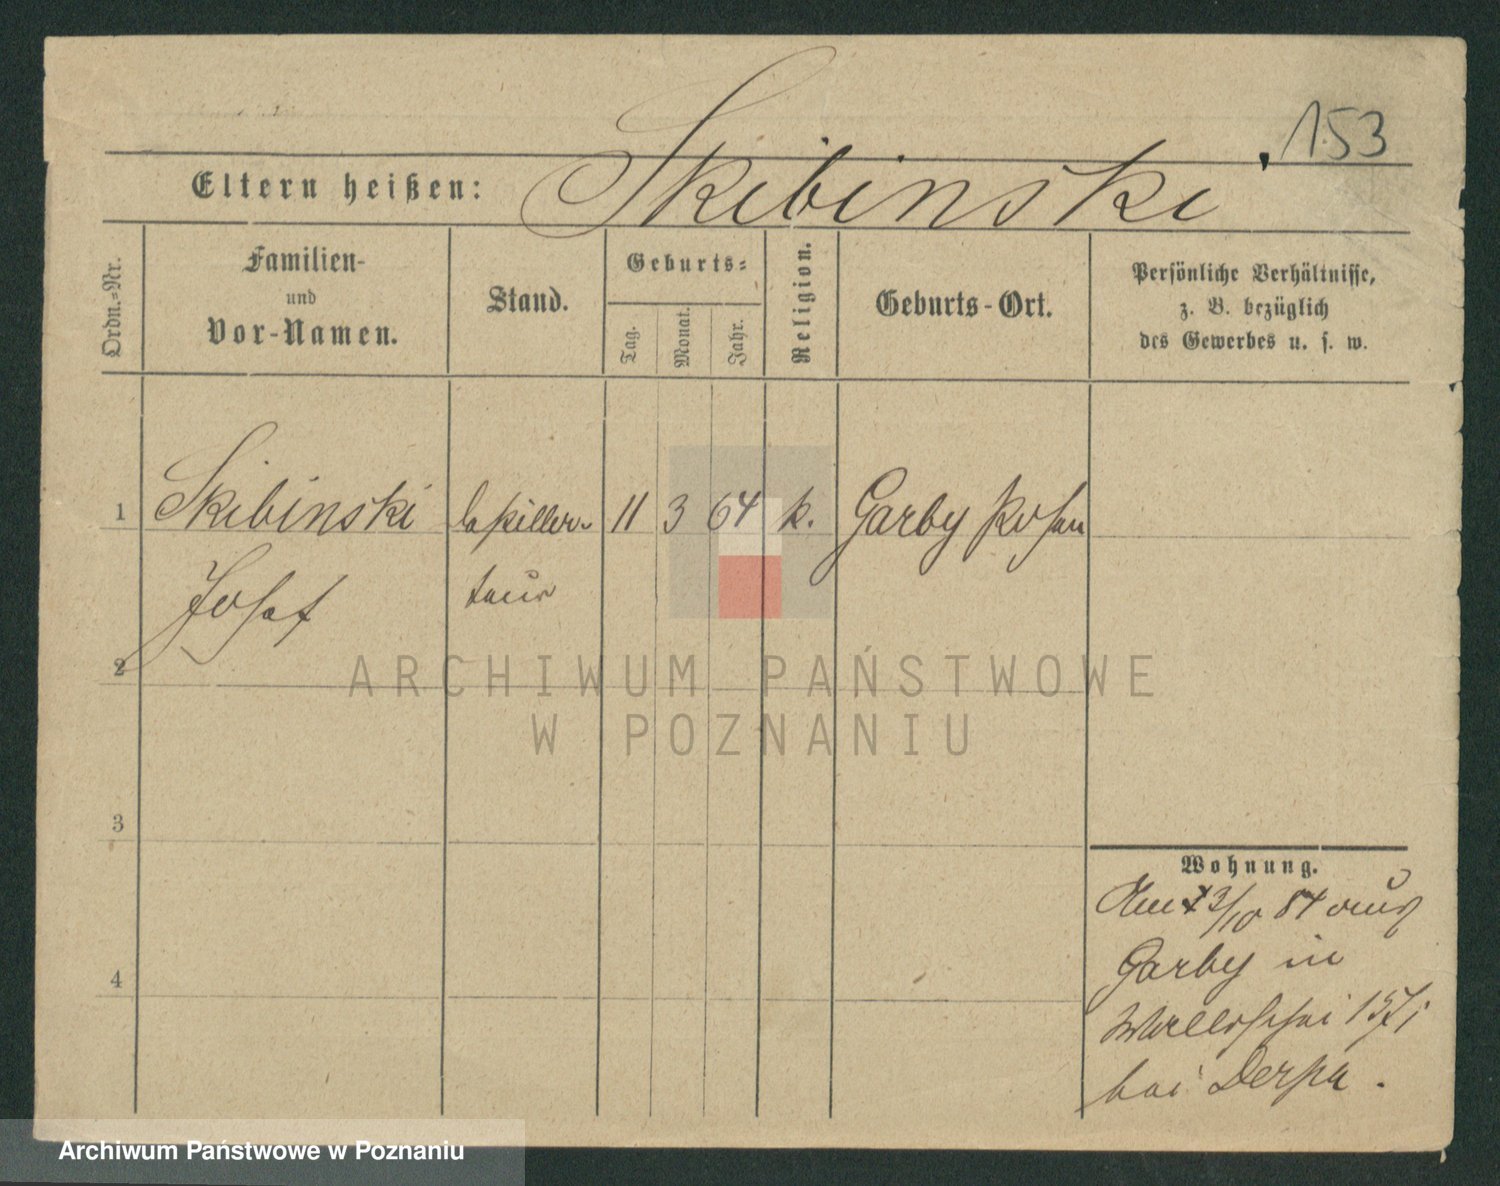 153
Eltern heißen: Skibinski
Ordn.-Nr.
Familien-
und
Vor-Namen.
Stand.
Geburts-
Tag.
Monat.
Jahr.
Religion.
Geburts-Ort.
Persönliche Verhältnisse,
z. B. bezüglich
des Gewerbes u. s. w.
1 Skibinski 11 3 64 k. Garby Posen
Josef
2
3
4
Wohnung.
Am 3/10 84 aus
Garby in
Wallischei
bei
ARCHIWUM PAŃSTWOWE
W POZNANIU
Archiwum Państwowe w Poznaniu